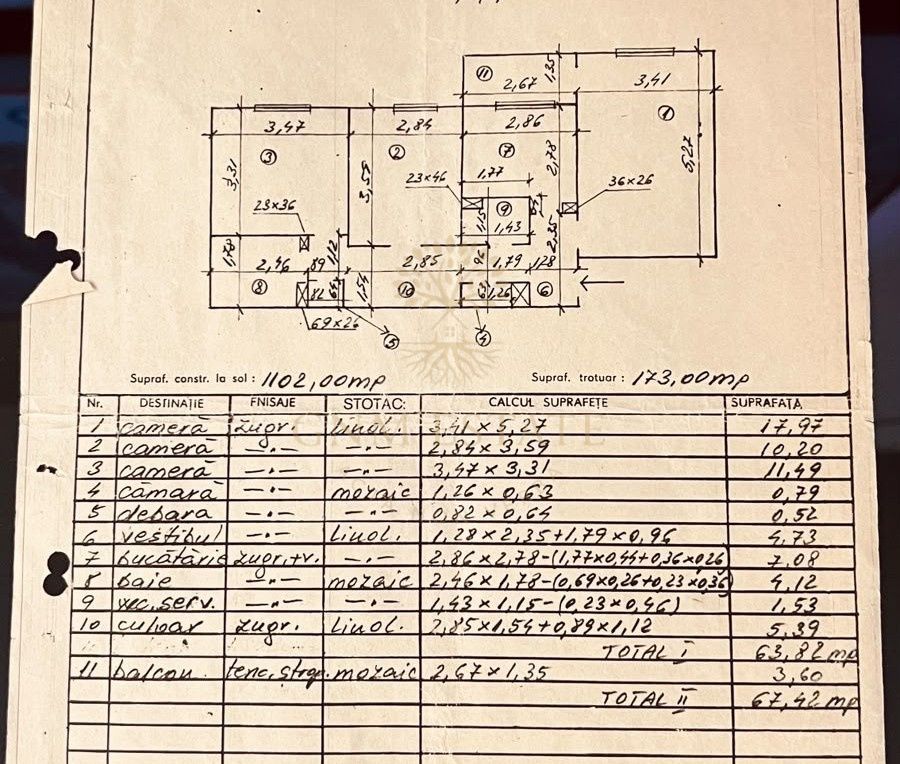 11
2,67
1,35
3,41
1
3,47
2,84
2,86
3
2
7
2,78
5,27
3,31
3,59
1,77
23×46
36×26
23×36
9
1,15
1,43
2,35
1,78
1,12
2,46
89
2,85
96
1,79
1,28
8
82
64
1,54
10
63
1,26
6
69×26
5
4
Supraf. constr. la sol : 1102,00mp
Supraf. trotuar : 173,00mp
Nr. DESTINAȚIE FNISAJE STOTAC: CALCUL SUPRAFEȚE SUPRAFAȚA
1 cameră zugr. linol. 3,41 × 5,27 17,97
2 cameră —"— —"— 2,84 × 3,59 10,20
3 cameră —"— —"— 3,47 × 3,31 11,49
4 cămară —"— mozaic 1,26 × 0,63 0,79
5 debara —"— —"— 0,82 × 0,64 0,52
6 vestibul —"— Linol. 1,28 × 2,35 + 1,79 × 0,96 4,73
7 bucătărie zugr.+v. —"— 2,86 × 2,78 – (1,77×0,44+0,36×0,26) 7,08
8 baie —"— mozaic 2,46 × 1,78 – (0,69×0,26+0,23×0,36) 4,12
9 wc.serv. —"— —"— 1,43 × 1,15 – (0,23×0,46) 1,53
10 culoar zugr. Linol. 2,85×1,54+0,89×1,12 5,39
TOTAL I 63,82 mp
11 balcon. mozaic 2,67 × 1,35 3,60
TOTAL II 67,42 mp